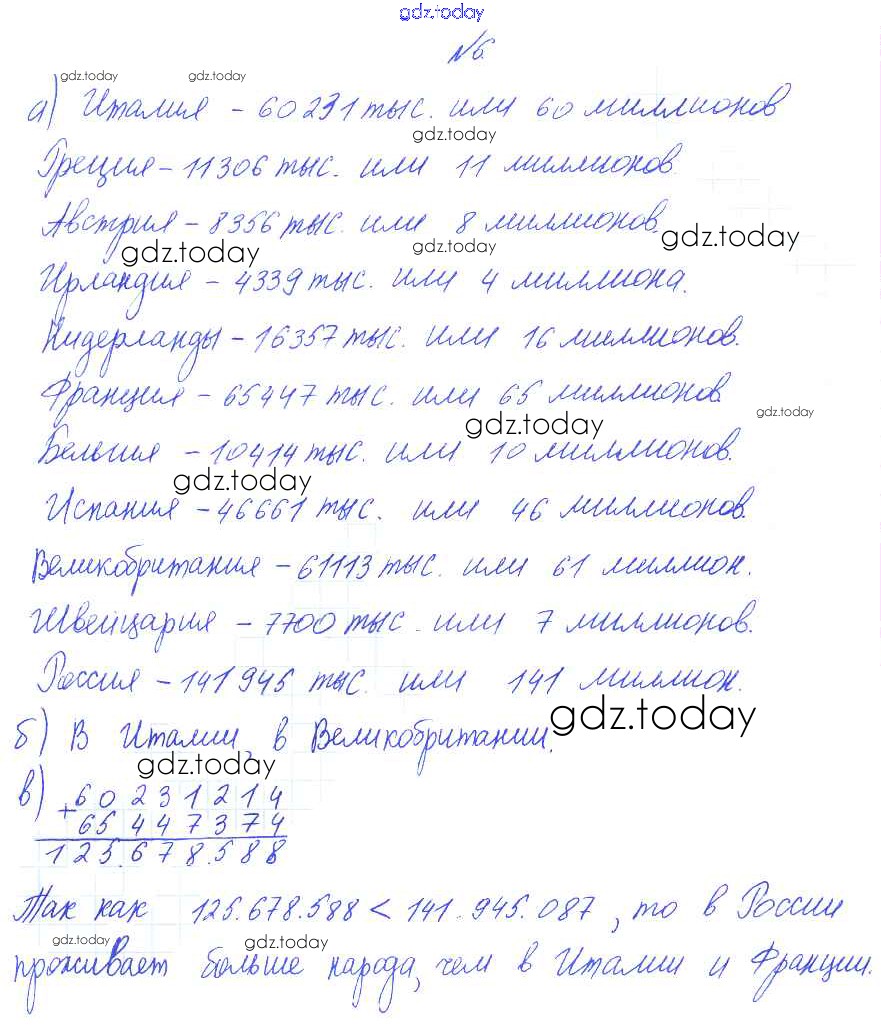 gdz.today
№6.
gdz.today gdz.today
а) Италия - 60 231 тыс. или 60 миллионов
gdz.today
Греция - 11 306 тыс. или 11 миллионов.
Австрия - 8 356 тыс. или 8 миллионов.
gdz.today gdz.today gdz.today
Ирландия - 4339 тыс. или 4 миллиона.
Нидерланды - 16357 тыс. или 16 миллионов.
Франция - 65447 тыс. или 65 миллионов.
gdz.today gdz.today
Бельгия - 10414 тыс. или 10 миллионов.
gdz.today
Испания - 46661 тыс. или 46 миллионов.
Великобритания - 61113 тыс. или 61 миллион.
Швейцария - 7700 тыс. или 7 миллионов.
Россия - 141 945 тыс. или 141 миллион.
gdz.today
б) В Италии, в Великобритании.
gdz.today
в) +60231214
65447374
125.678.588
Так как 125.678.588 < 141.945.087, то в России
gdz.today gdz.today
проживает больше народа, чем в Италии и Франции.